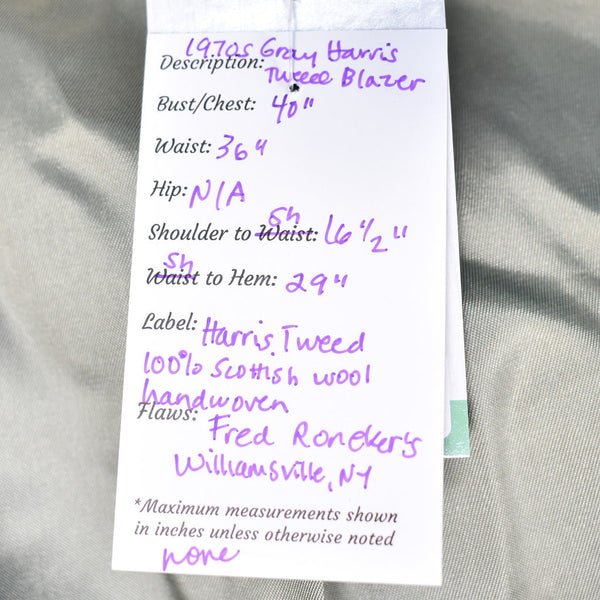 1970s Gray Harris
Description: Tweed Blazer
Bust/Chest: 40"
Waist: 36"
Hip: N/A
Sh
Shoulder to Waist: 16 1/2"
Sh
Waist to Hem: 29"
Label: Harris Tweed
100% Scottish wool
handwoven
Flaws: Fred Roneker's
Williamsville, NY
*Maximum measurements shown
in inches unless otherwise noted
none